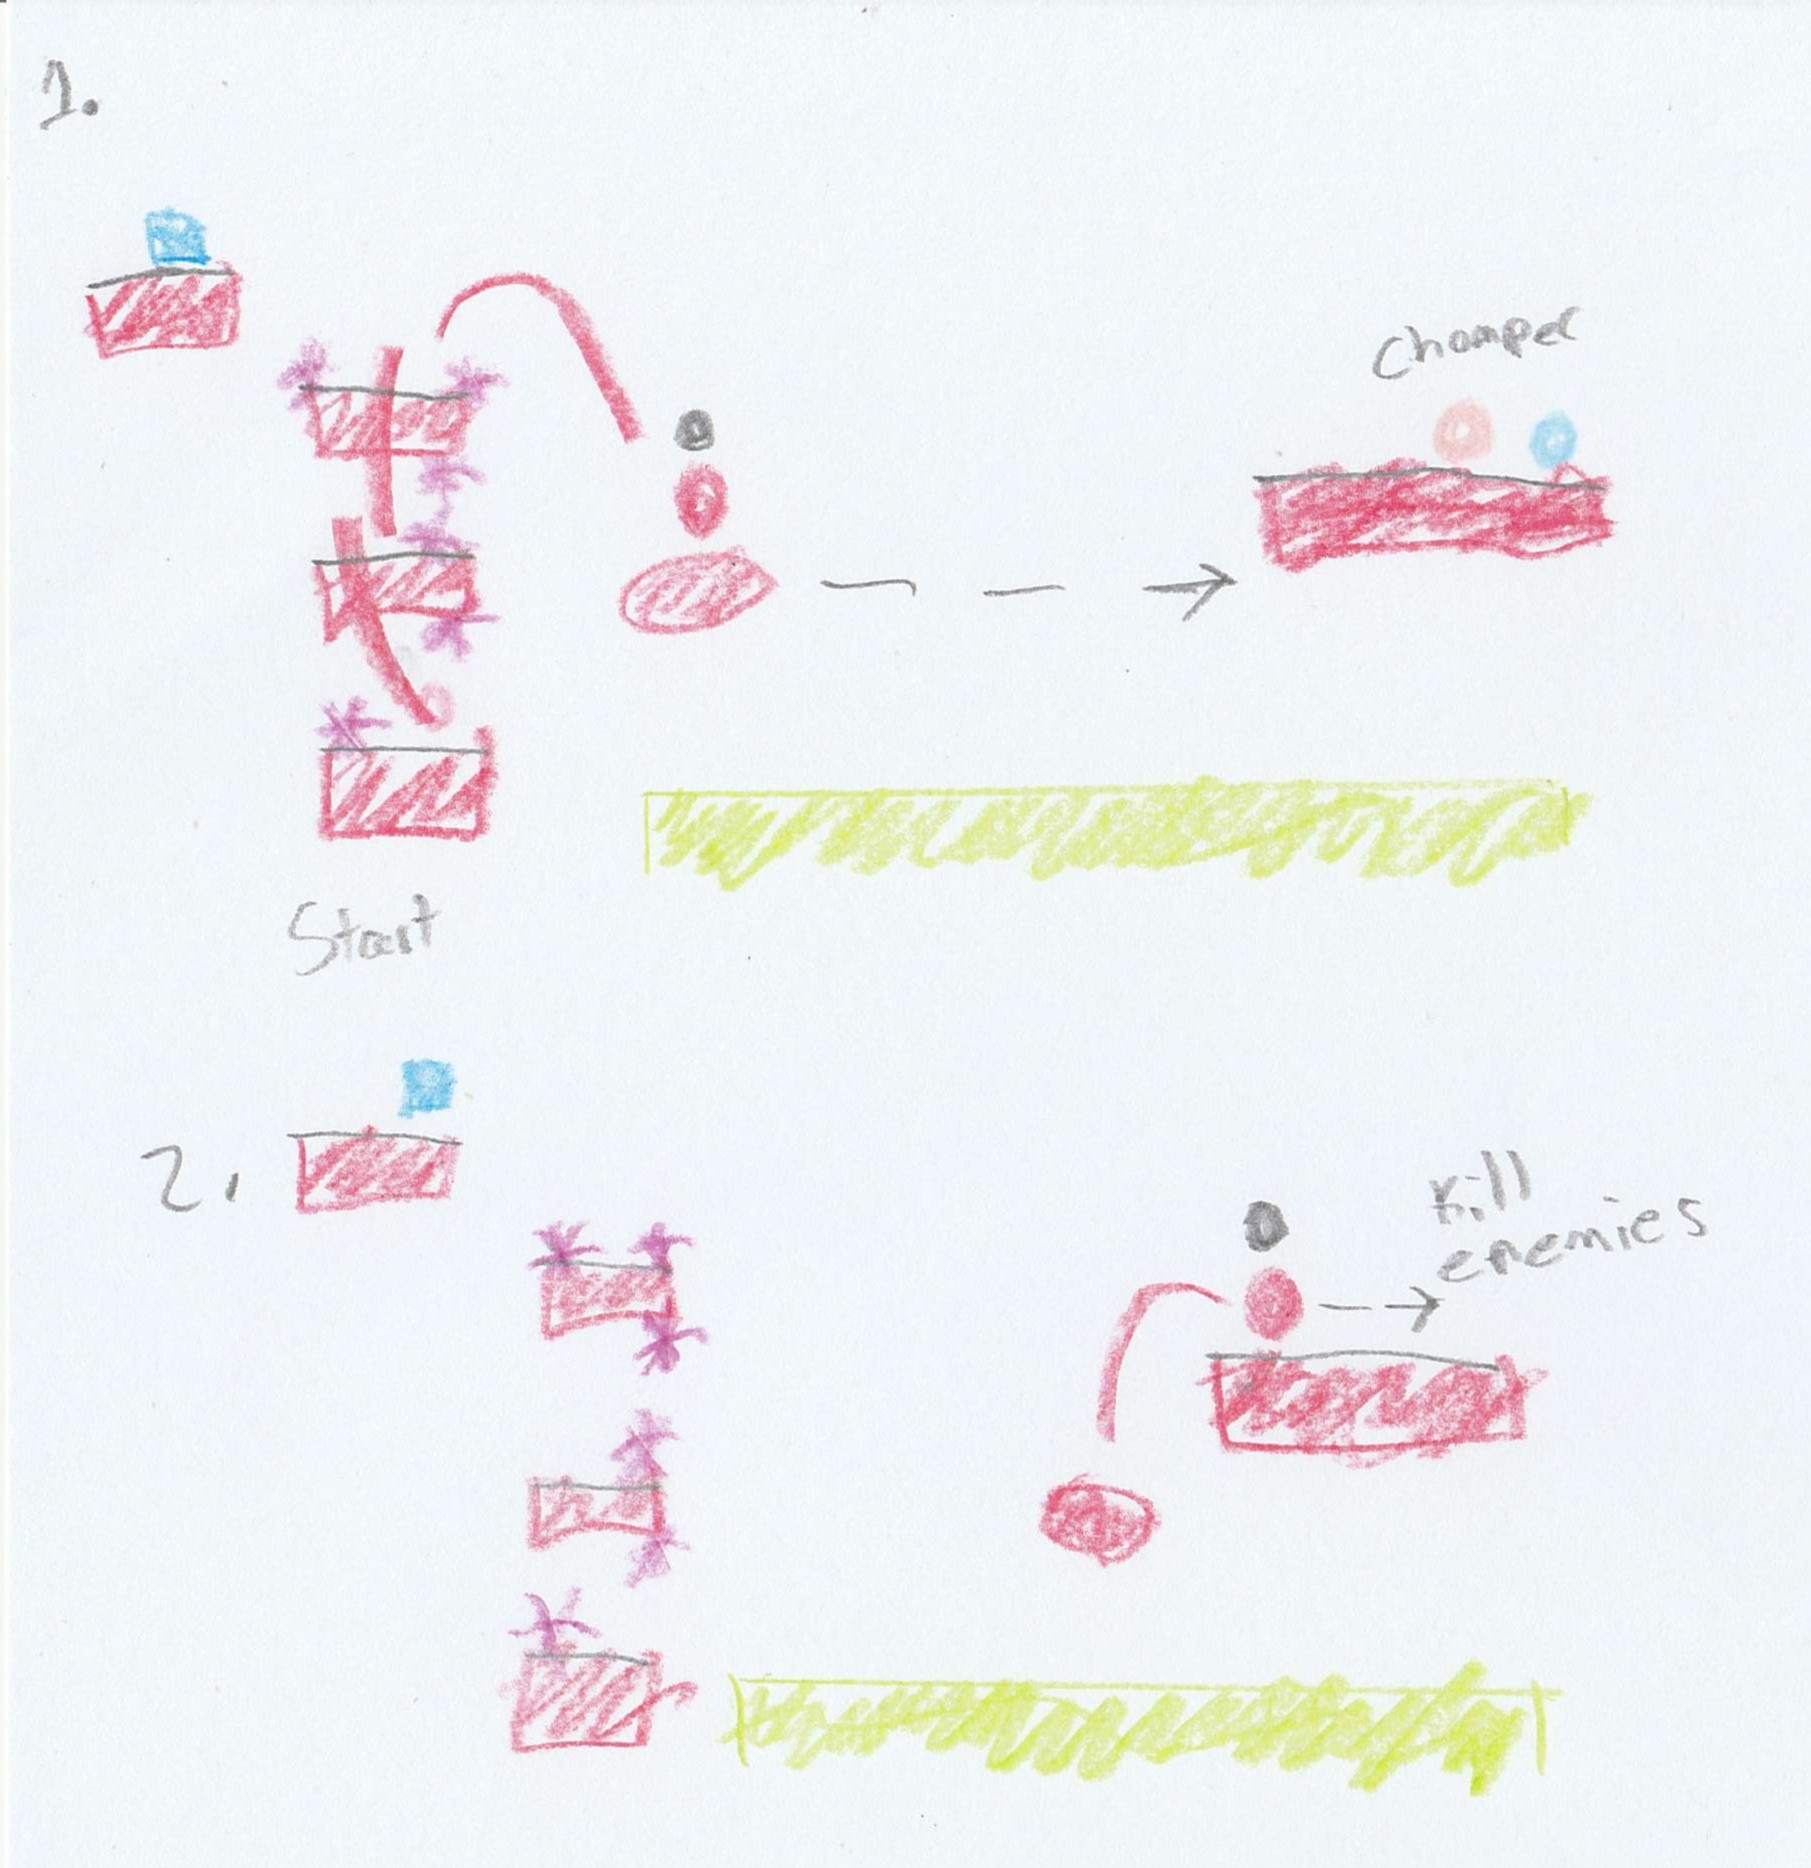 1.
Chomper
Start
2.
kill
enemies